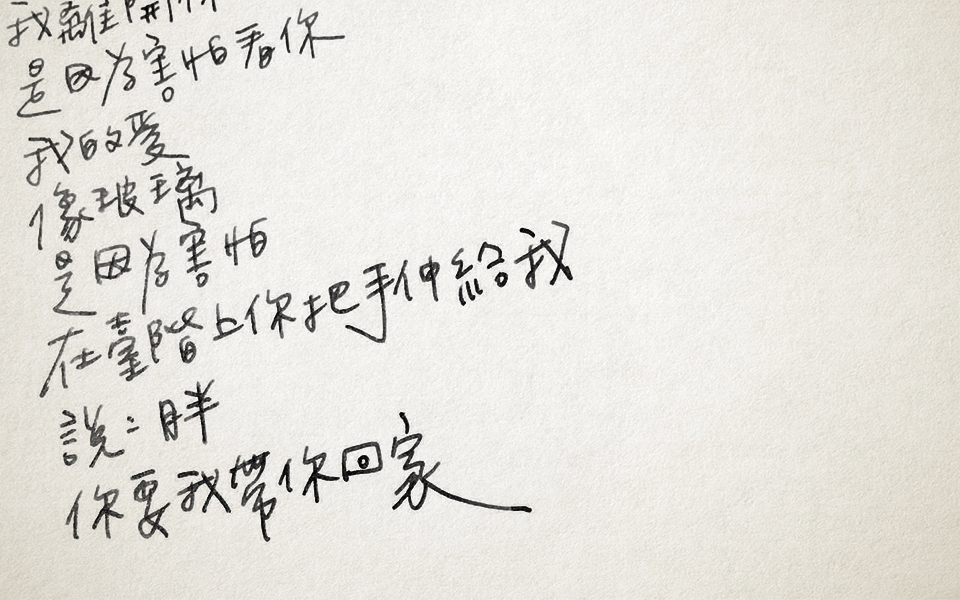 我離開你
是因为害怕看你
我的愛
像玻璃
是因为害怕
在臺階上你把手伸給我
說：胖
你要我帶你回家